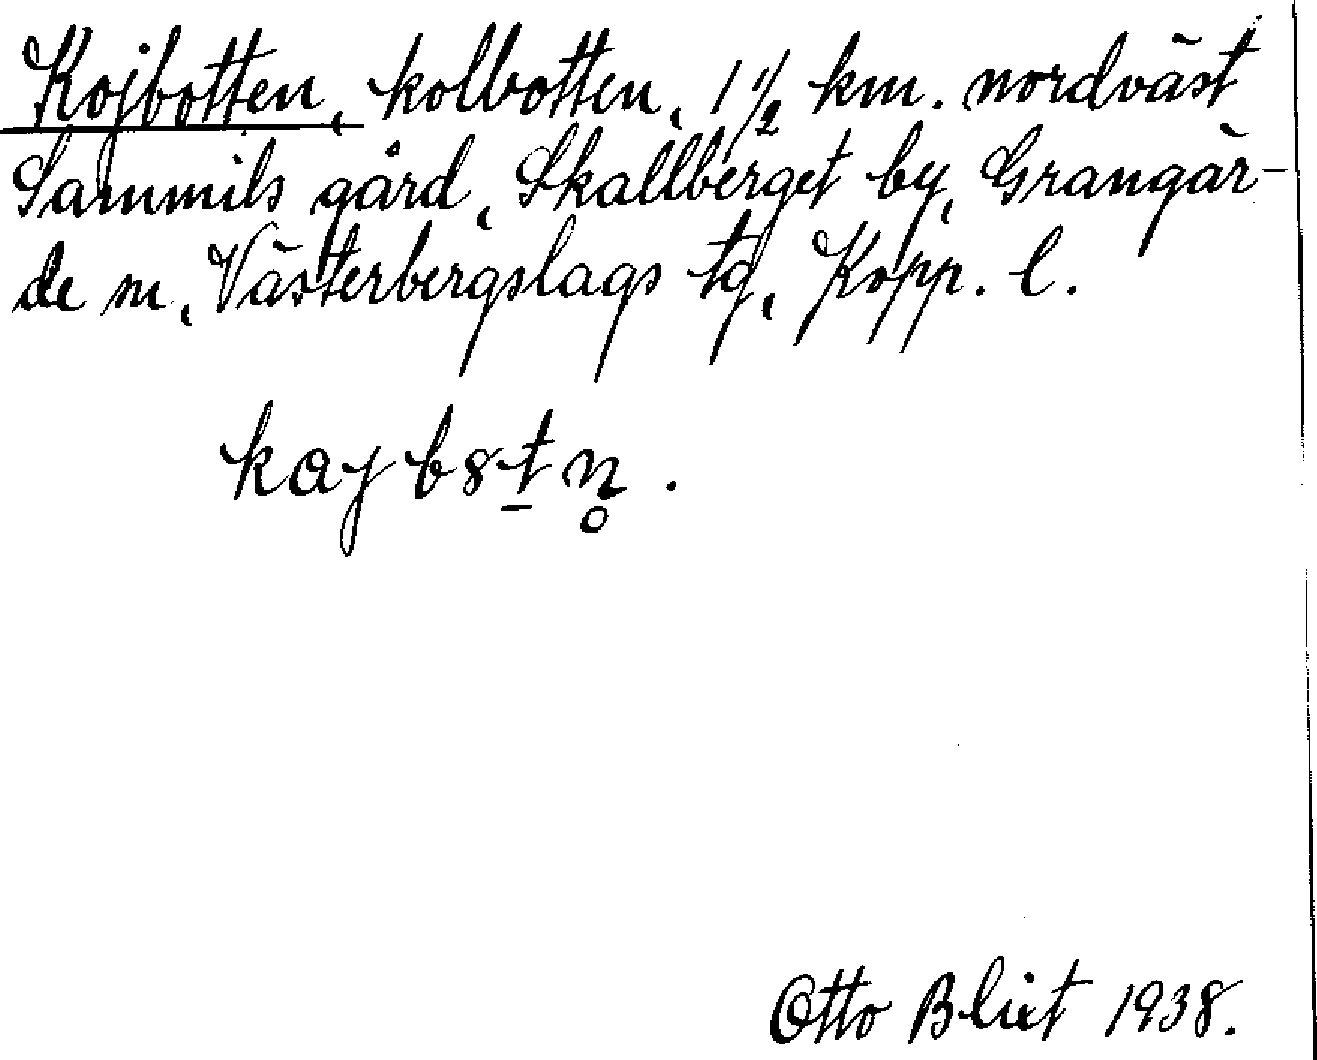 Kojbotten, kolbotten, 1 1/2 km. nordväst
Sammils gård, Skallberget by, Grangär-
de sn, Västerbergslags tg, Kopp. l.
kajb8t̲n̥.
Otto Blixt 1938.